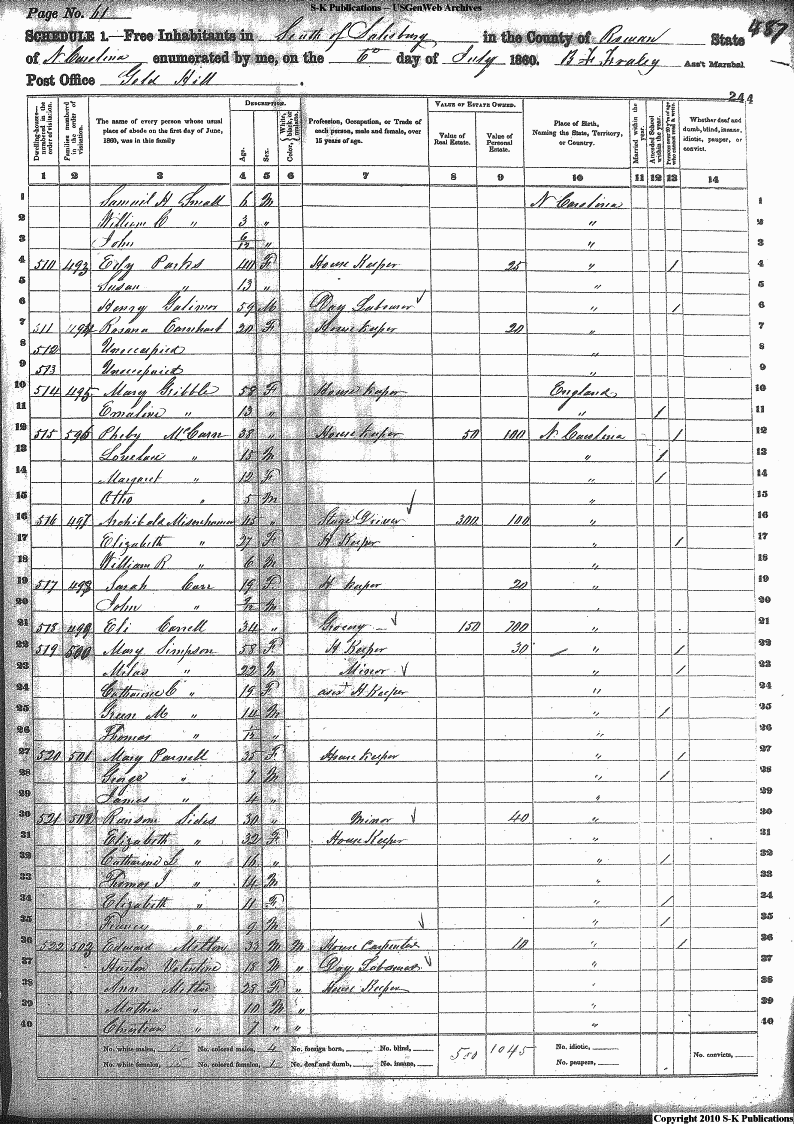 S-K Publications – USGenWeb Archives
Page No. 61
487
SCHEDULE 1.—Free Inhabitants in South of Salisbury in the County of Rowan State
of N Carolina enumerated by me, on the 6th day of July 1860. B F Fraley Ass't Marshal.
Post Office Gold Hill.
244
Dwelling-houses—numbered in the order of visitation. Families numbered in the order of visitation. The name of every person whose usual place of abode on the first day of June, 1860, was in this family. DESCRIPTION. Age. Sex. Color, White, black, or mulatto. Profession, Occupation, or Trade of each person, male and female, over 15 years of age. VALUE OF ESTATE OWNED. Value of Real Estate. Value of Personal Estate. Place of Birth, Naming the State, Territory, or Country. Married within the year. Attended School within the year. Persons over 20 y'rs of age who cannot read & write. Whether deaf and dumb, blind, insane, idiotic, pauper, or convict.
1 2 3 4 5 6 7 8 9 10 11 12 13 14
1 Samuel H Small 6 M N Carolina 1
2 William C " 3 " " 2
3 John 6/12 " " 3
4 510 493 Parks 40 F House Keeper 25 " / 4
5 Susan " 13 " " 5
6 Henry Galimor 59 M Day Labourer ✓ " / 6
7 511 494 Rosana Earnhart 20 F House Keeper 20 " 7
8 512 Unoccupied " 8
9 513 Unoccupied " 9
10 514 495 Mary Gribble 58 F House Keeper England 10
11 Emaline " 13 " " / 11
12 515 596 Pheby McCarn 38 " House Keeper 50 100 N Carolina / 12
13 Lovelace " 15 M " / 13
14 Margaret " 12 F " / 14
15 Otho " 5 M " 15
16 516 497 Archibald Misenhamer 45 " Stage Driver ✓ 300 100 " 16
17 Elizabeth " 27 F H Keeper " / 17
18 William R " 6 M " 18
19 517 498 Sarah Carr 19 F H Keeper 20 " 19
20 John " M " 20
21 518 499 Eli Carrell 34 " Grocery ✓ 150 700 " 21
22 519 500 Mary Simpson 58 F H Keeper 30 " / 22
23 Milas " 22 M Minor ✓ " / 23
24 Catharine C " 19 F asist H Keeper " 24
25 Green M " 14 M " / 25
26 Thomas " 1/12 " " 26
27 520 501 Mary Parnell 35 F House Keeper " / 27
28 George " 7 M " / 28
29 James " 4 " " 29
30 521 502 Ransom Sides 30 " Minor ✓ 40 " 30
31 Elizabeth " 32 F House Keeper " 31
32 Catharine L " 16 " " / 32
33 Thomas J " 14 M " 33
34 Elizabeth " 11 F " / 34
35 Francis " 9 M " / 35
36 522 503 Edward Motton 33 M M House Carpenter ✓ 10 " / 36
37 Huston Valentine 18 M " Day Labourer ✓ " 37
38 Ann Motton 28 F " House Keeper " 38
39 Mathew " 10 M " " 39
40 Christian " 7 " " " 40
No. white males, No. colored males, 4 No. foreign born, No. blind, 500 1045 No. idiotic, No. convicts,
No. white females, 15 No. colored females, 1 No. deaf and dumb, No. insane, No. paupers,
Copyright 2010 S-K Publications